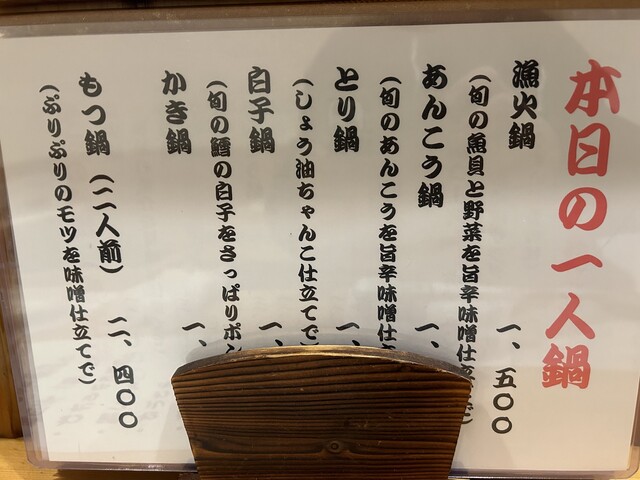 本日の一人鍋
漁火鍋 一、五〇〇
(旬の魚貝と野菜を旨辛味噌仕立てで)
あんこう鍋 一、
(旬のあんこうを旨辛味噌仕
とり鍋 一、
(しょう油ちゃんこ仕立てで
白子鍋 一、
(旬の鱈の白子をさっぱりポン
かき鍋 一、
もつ鍋(二人前) 二、四〇〇
(ぷりぷりのモツを味噌仕立てで)